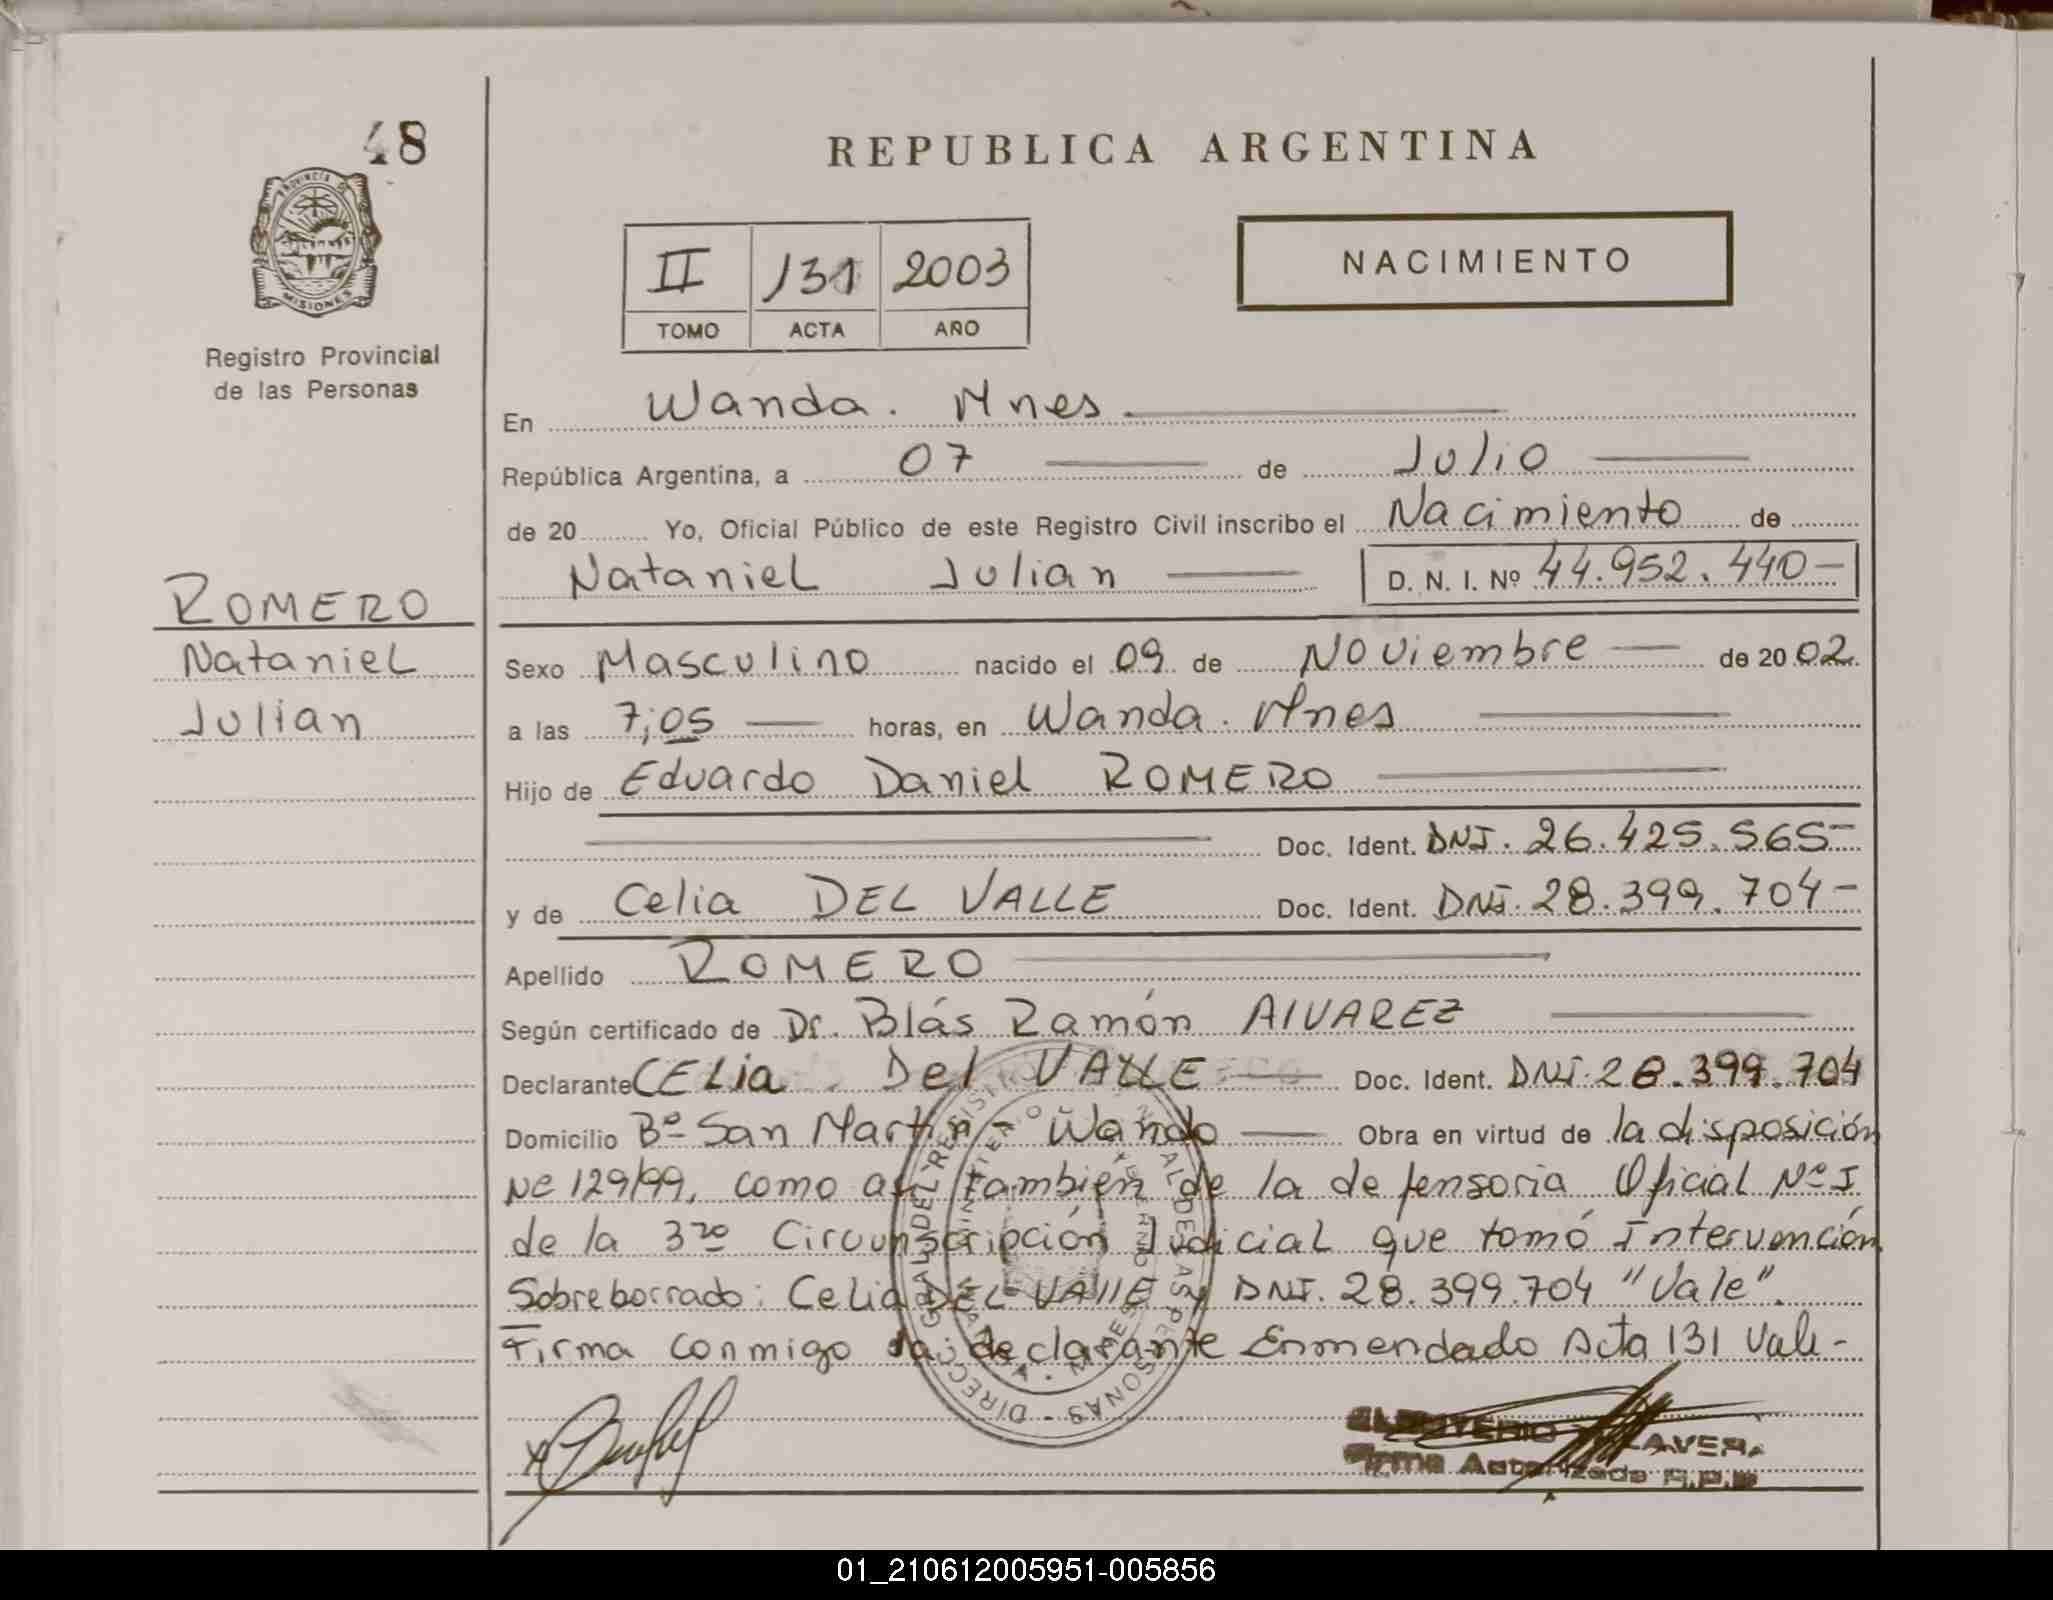 48
REPUBLICA ARGENTINA
PROVINCIA DE
MISIONES
Registro Provincial
de las Personas
II 131 2003
TOMO ACTA AÑO
NACIMIENTO
En Wanda. Mnes.
República Argentina, a 07 de Julio
de 20 Yo, Oficial Público de este Registro Civil inscribo el Nacimiento de
Nataniel Julian D. N. I. Nº 44.952.440-
ROMERO
Nataniel
Julian
Sexo Masculino nacido el 09 de Noviembre de 2002.
a las 7;05 horas, en Wanda. Mnes
Hijo de Eduardo Daniel ROMERO
Doc. Ident. DNI. 26.425.565-
y de Celia DEL VALLE Doc. Ident. DNI. 28.399.704-
Apellido ROMERO
Según certificado de Dr. Blás Ramón AlVAREZ
Declarante CELia Del VALLE Doc. Ident. DNI. 28.399.704
Domicilio Bº San Martin - Wanda Obra en virtud de la disposición
Nº 129/99, como asi tambien de la defensoria Oficial Nº I
de la 3ra Circunscripción Judicial que tomó Intervención
Sobreborrado: Celia DEL VAllE y DNI. 28.399.704 "Vale".
Firma conmigo la declarante Enmendado Acta 131 Vale-
DIRECC. GRAL DEL REGISTRO DE LAS PERSONAS
WANDA - MNES
Firma Autorizada R.P.P
01_210612005951-005856